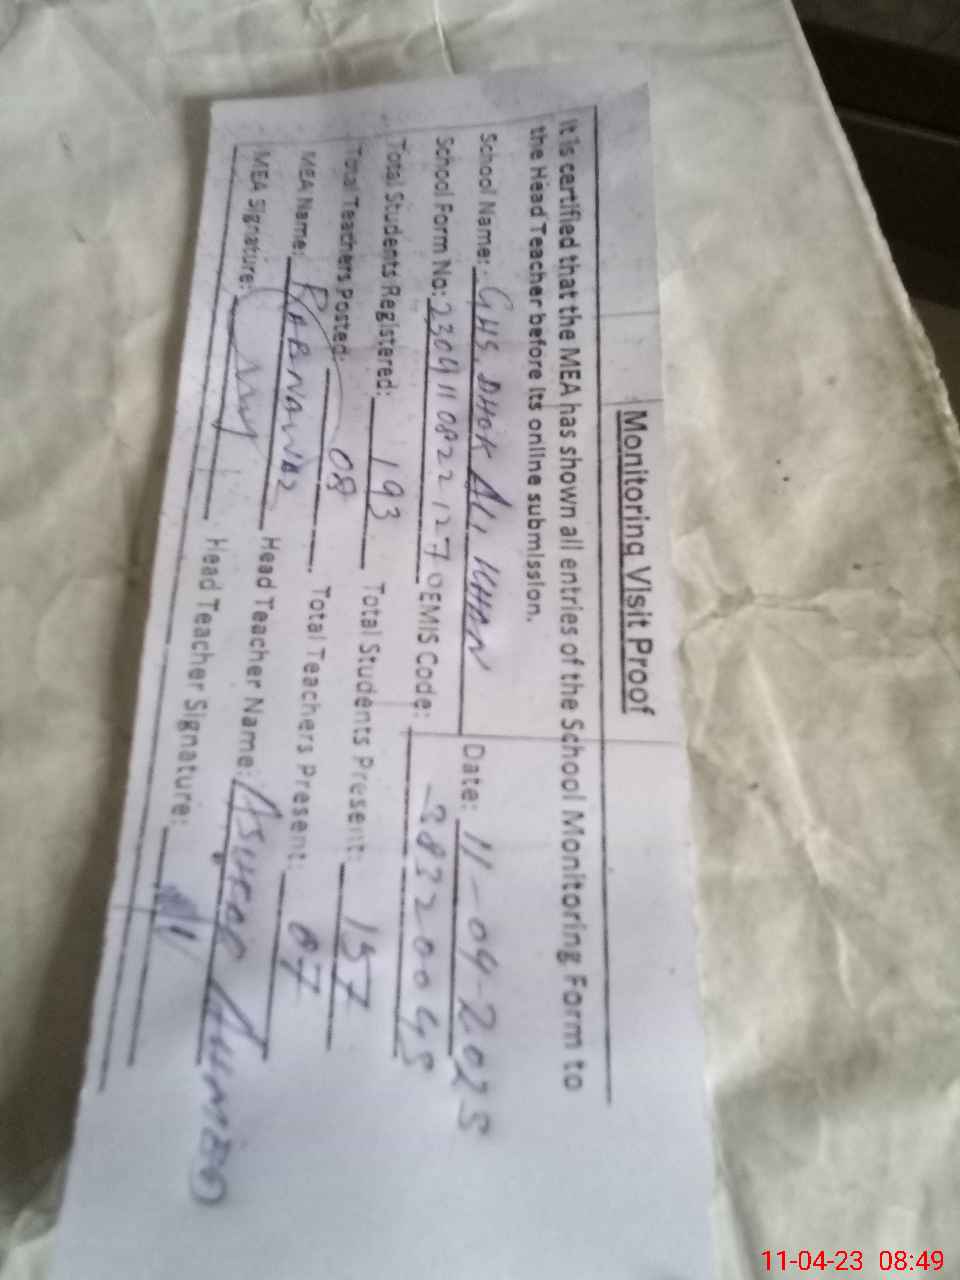 Monitoring Visit Proof
It is certified that the MEA has shown all entries of the School Monitoring Form to
the Head Teacher before its online submission.
School Name: GHS, DHOK ALI KHAN Date: 11-04-2023
School Form No: 23041108221270 EMIS Code: 38320045
Total Students Registered: 193 Total Students Present: 157
Total Teachers Posted: 08 Total Teachers Present: 07
MEA Name: RABNAWAZ Head Teacher Name:
MEA Signature: Head Teacher Signature:
11-04-23 08:49